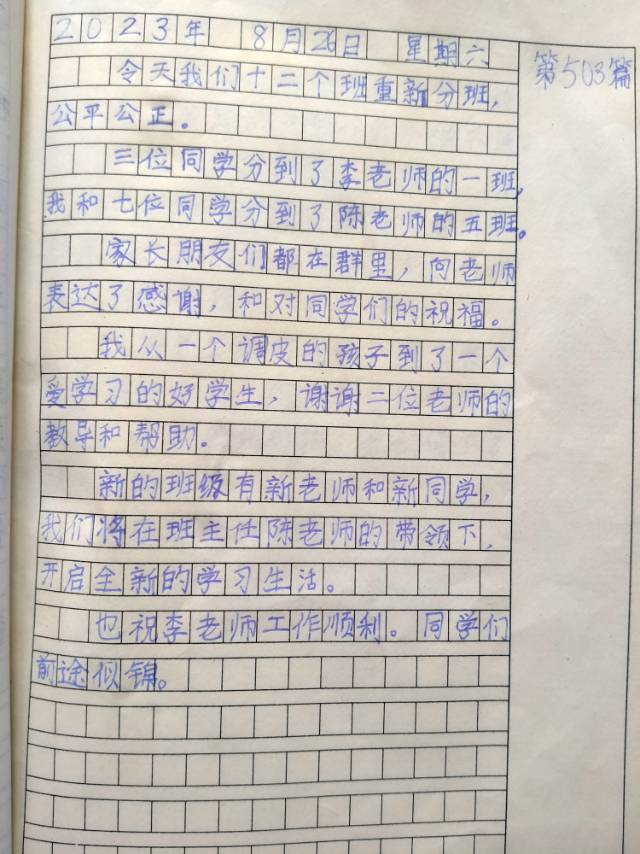 2023年 8月26日 星期六
第503篇
今天我们十二个班重新分班,
公平公正。
三位同学分到了李老师的一班,
我和七位同学分到了陈老师的五班。
家长朋友们都在群里,向老师
表达了感谢,和对同学们的祝福。
我从一个调皮的孩子到了一个
爱学习的好学生,谢谢二位老师的
教导和帮助。
新的班级有新老师和新同学,
我们将在班主任陈老师的带领下,
开启全新的学习生活。
也祝李老师工作顺利。同学们
前途似锦。